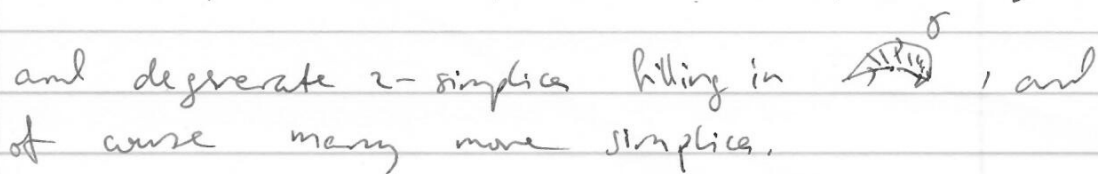 and degenerate 2-simplices filling in σ , and
of course many more simplices.